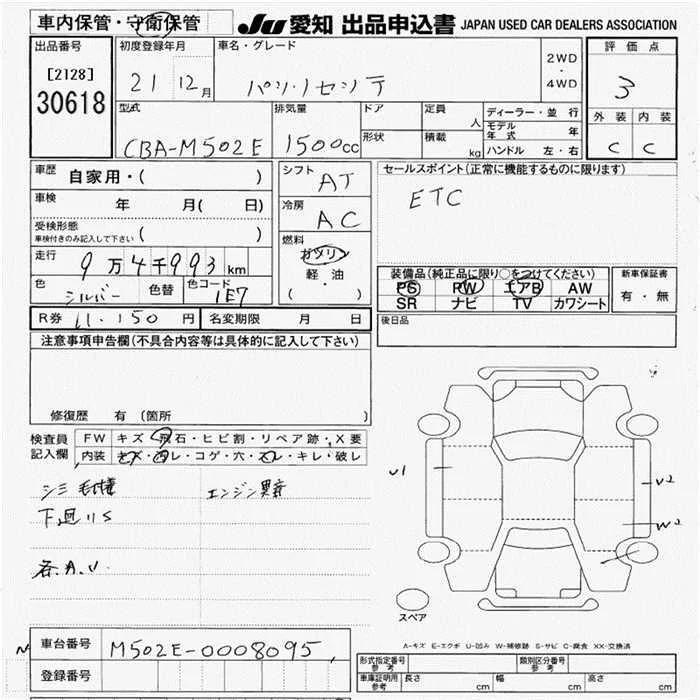 車内保管・守衛保管
JU 愛知 出品申込書 JAPAN USED CAR DEALERS ASSOCIATION
出品番号
[2128]
30618
初度登録年月
21 12月
車名・グレード
2WD
・
4WD
評価点
3
外装 内装
C C
型式
CBA-M502E
排気量
1500cc
ドア
形状
定員
人
積載
kg
ディーラー・並行
モデル年式 年
ハンドル 左・右
車歴
自家用・( )
車検
年 月( 日)
受検形態
車検付きのみ記入して下さい ( )
走行
9万4千993km
色
シルバー
色替
色コード
1E7
シフト
AT
冷房
AC
燃料
ガソリン
軽・油
( ・ )
セールスポイント(正常に機能するものに限ります)
ETC
装備品(純正品に限り○をつけてください)
PS PW エアB AW
SR ナビ TV カワシート
新車保証書
有・無
後日品
R券 11.150円
名変期限 月 日
注意事項申告欄(不具合内容等は具体的に記入して下さい)
修復歴 有(箇所 )
検査員
記入欄
FW キズ・飛石・ヒビ割・リペア跡・X要
内装 キズ・汚レ・コゲ・穴・スレ・キレ・破レ
シミ
エンジン異音
下廻りS
各A.U
U1
U2
W2
スペア
A-キズ E-エクボ U-凹み W-補修跡 S-サビ C-腐食 XX-交換済
車台番号
M502E-0008095
登録番号
形式指定番号
参考
類別区分番号
参考
車庫証明用
参考
長さ cm
幅 cm
高さ cm